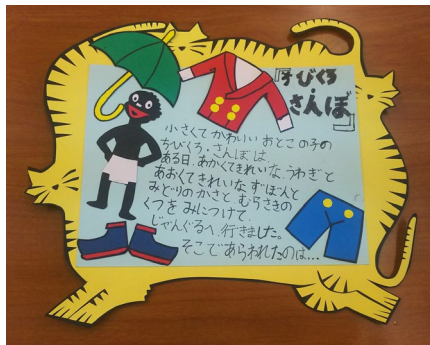 『ちびくろ
・さんぼ』
小さくてかわいいおとこの子の
ちびくろ・さんぼは、
ある日、あかくてきれいな、うわぎと
あおくてきれいなずぼんと
みどりのかさとむらさきの
くつをみにつけて、
じゃんぐるへ、行きました。
そこであらわれたのは…